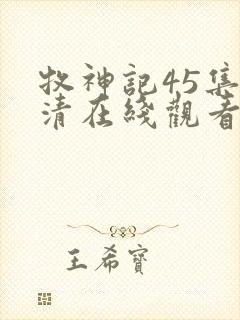 牧神記45集
清在綫觀看
王希寶